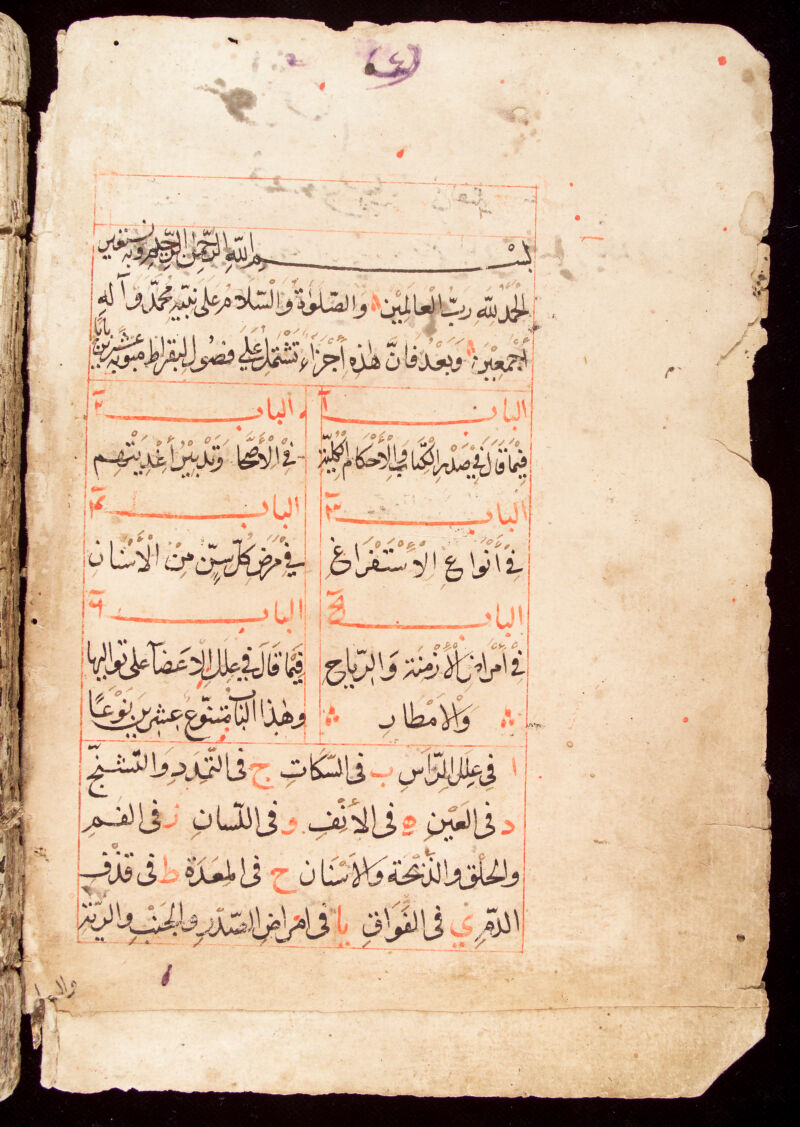 (٤)
بسم الله الرحمن الرحيم وبه نستعين
الحمد لله رب العالمين والصلوة والسلام على نبيه محمد وآله
أجمعين وبعد فان هذه أجزاء تشتمل على فصول لبقراط مبوبة عشرين بابا
الباب ١
فيما قال في صدر الكتاب والأحكام الكلية
الباب ٢
في الأصحا وتدبير أغذيتهم
الباب ٣
في أنواع الاستفراغ
الباب ٤
في مرض كل سن من الأسنان
الباب ٥
في أمراض الأزمنة والرياح
والامطار
الباب ٦
فيما قال في علل الاعضآ على تواليها
وهذا الباب متنوع عشرين نوعا
ا في علل الراس ب في السكات ج في التمدد والتشنج
د في العين ه في الأنف و في اللسان ز في الفم
والحلق والذبحة والاسنان ح في المعدة ط في قذف
الدم ي في الفواق يا في امراض الصدر والجنب والرية